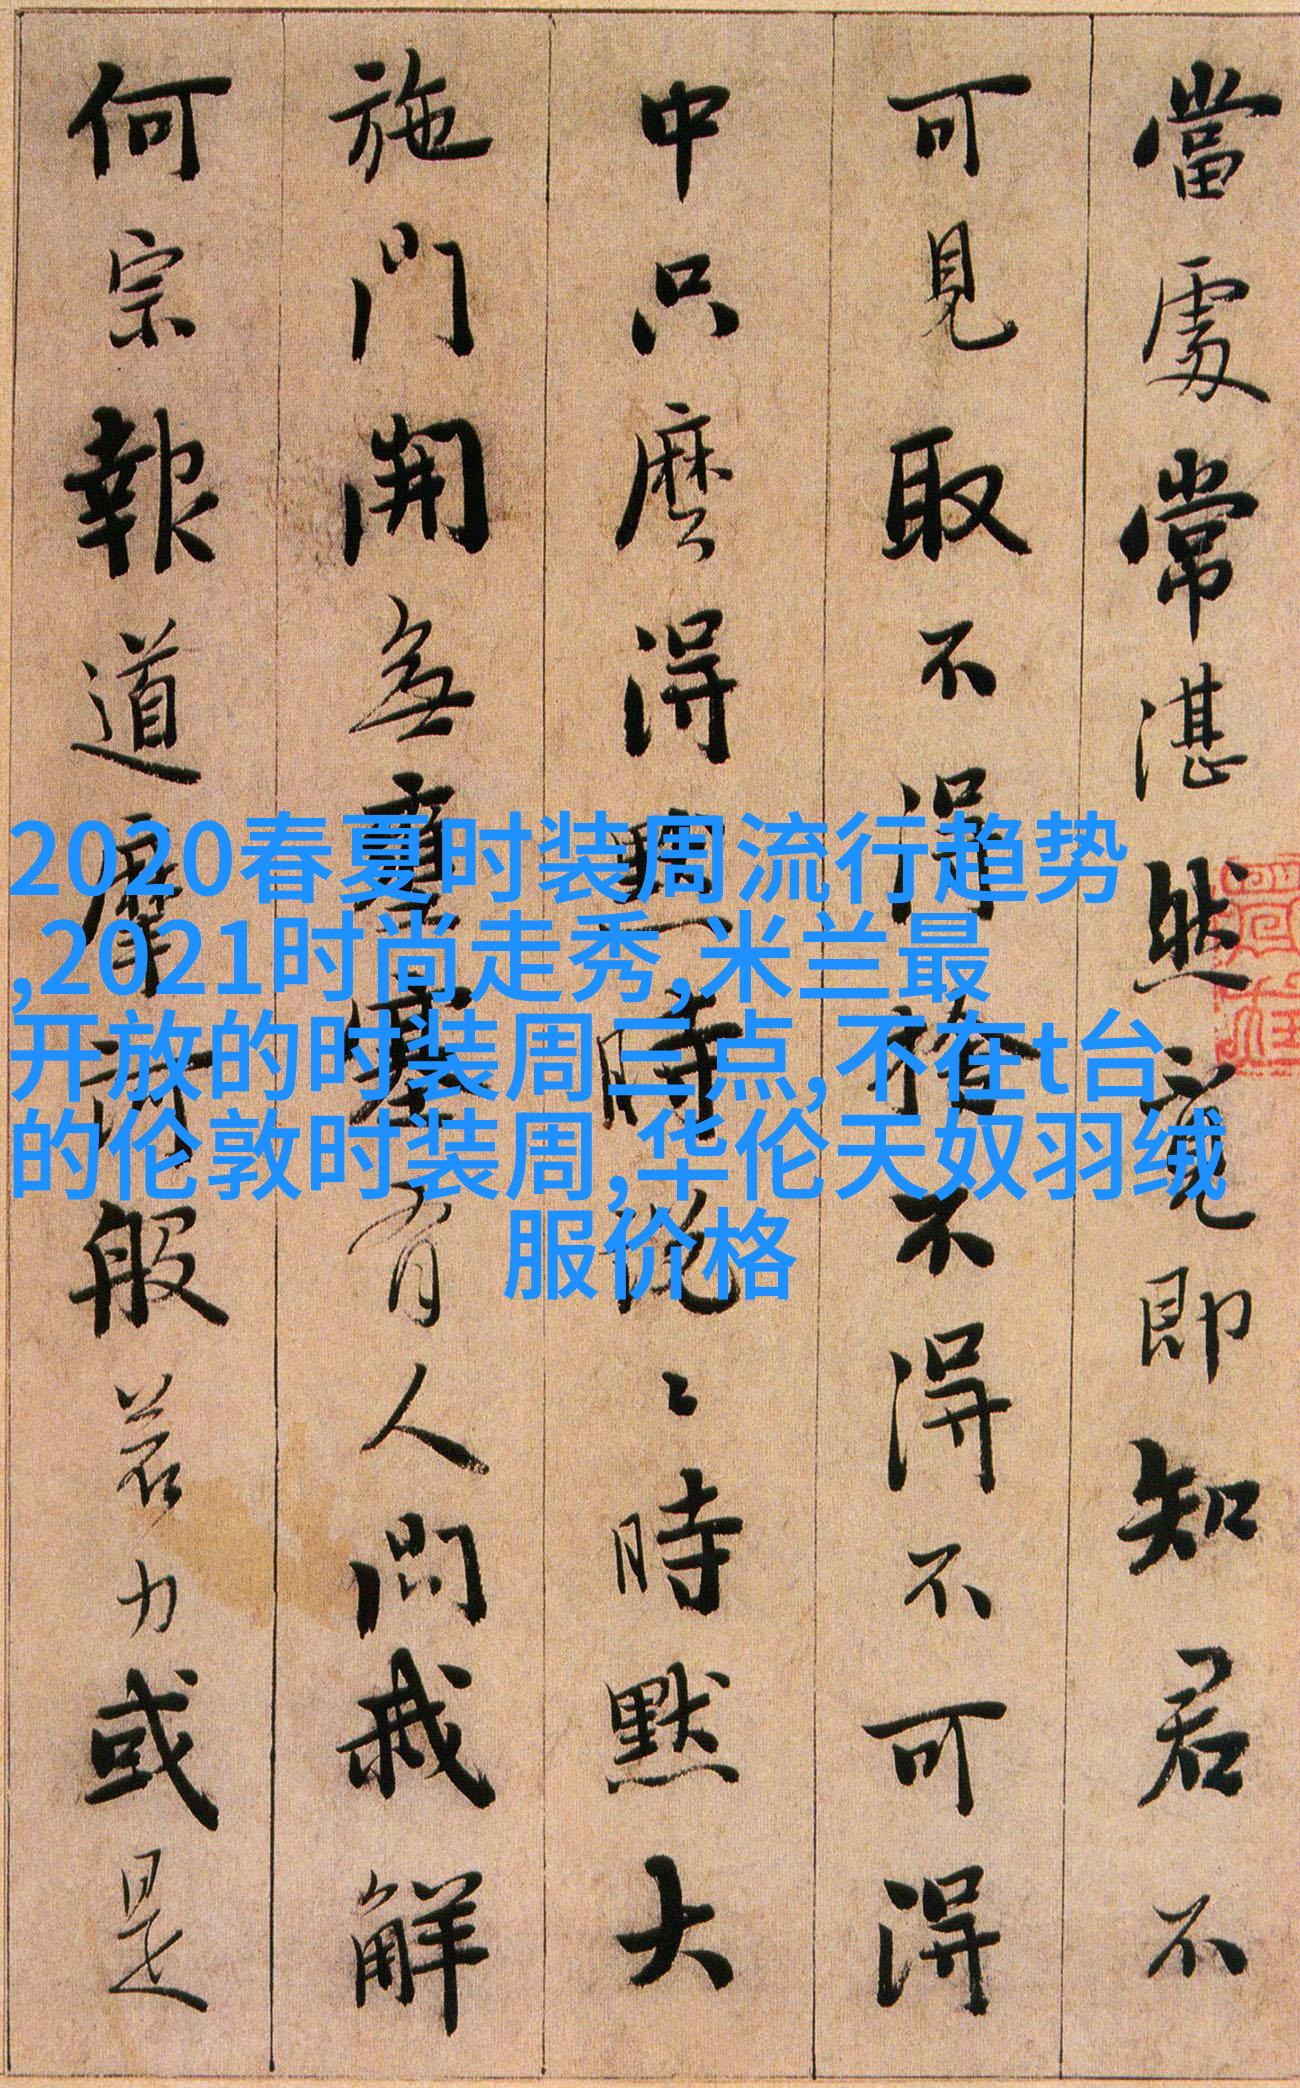 當處常湛然覓即知君不
可見取不得捨不得不可得
中只麼得默時說〻時默大
施門開無壅塞有人問我解
何宗報道摩訶般若力或是
2020春夏时装周流行趋势
,2021时尚走秀,米兰最
开放的时装周三点,不在t台
的伦敦时装周,华伦天奴羽绒
服价格